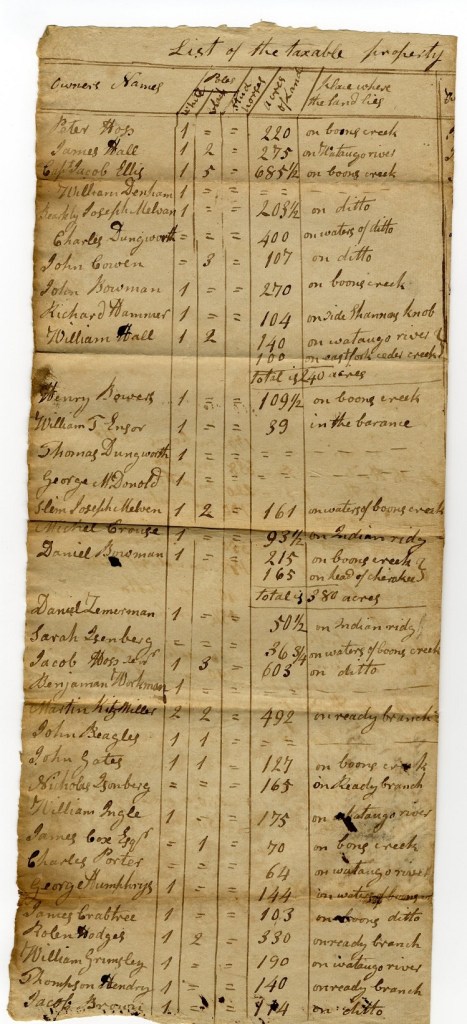 List of the taxable property
Owners Names White Poles black Stud horses acres of Land place where the land lies
Peter Hoss 1 = = 220 on boons creek
James Hall 1 2 = 275 on Wataugo river
Cap Jacob Ellis 1 5 = 685½ on boons creek
William Denham 1 = =
Joseph Melvan 1 = = 203½ on ditto
Charles Dungworth = = = 400 on waters of ditto
John Cowen = 3 = 107 on ditto
John Bowman 1 = = 270 on boons creek
Richard Hammer 1 = = 104 on side Shannas knob
William Hall 1 2 = 140 on wataugo river
100 on eastfork ceder creek
total is 240 acres
Henry Bowers 1 = = 109½ on boons creek
William T Ensor 1 = = 39 in the barance
Thomas Dungworth 1 = = = = = =
George McDonold 1 = = = = = =
Slim Joseph Melven 1 2 = 161 on waters of boons creek
Michel Crouse 1 = = 93½ on Indian ridg
Daniel Bowman 1 = = 215 on boons creek
165 on head of cherokee
total is 380 acres
Daniel Zemerman 1 = = 50½ on Indian ridg
Sarah Isenberg = = = 36¾ on waters of boons creek
Jacob Hoss 1 3 = 603 on ditto
Benjaman Workman 1 = =
Martin Kitzmiller 2 2 = 492 on ready branch
John Beagles 1 1 = = =
John Gates 1 1 = 127 on boons creek
Nicholas Isenberg = = = 165 on Ready branch
William Ingle 1 = = 175 on wataugo river
James Cox Esqr = 1 = 70 on bons creek
Charles Porter = = = 64 on wataugo river
George Humphrys 1 = = 144 on waters of boons
James Crabtree 1 = = 103 on boons ditto
Rolen Hodges 1 2 = 330 on ready branch
William Grimsley 1 = = 190 on wataugo river
Thompson Hendry 1 = = 140 on ready branch
Jacob Brown 1 = = 114 on ditto